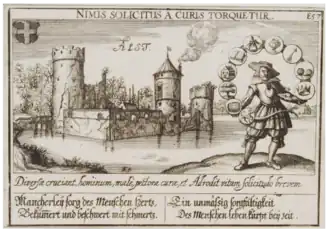 NIMIS SOLICITUS À CURIS TORQUETUR.
E57
ÆLST.
Diversæ cruciant, hominum, male, pectore curæ, et Adrodit vitam solicitudo brevem.
Mancherley sorg des Menschen Herts,
Bekümert und beschwert mit schmerts.
Ein unmäsig sorgfältigkeit
Des Menschen leben kürtzt bey zeit.